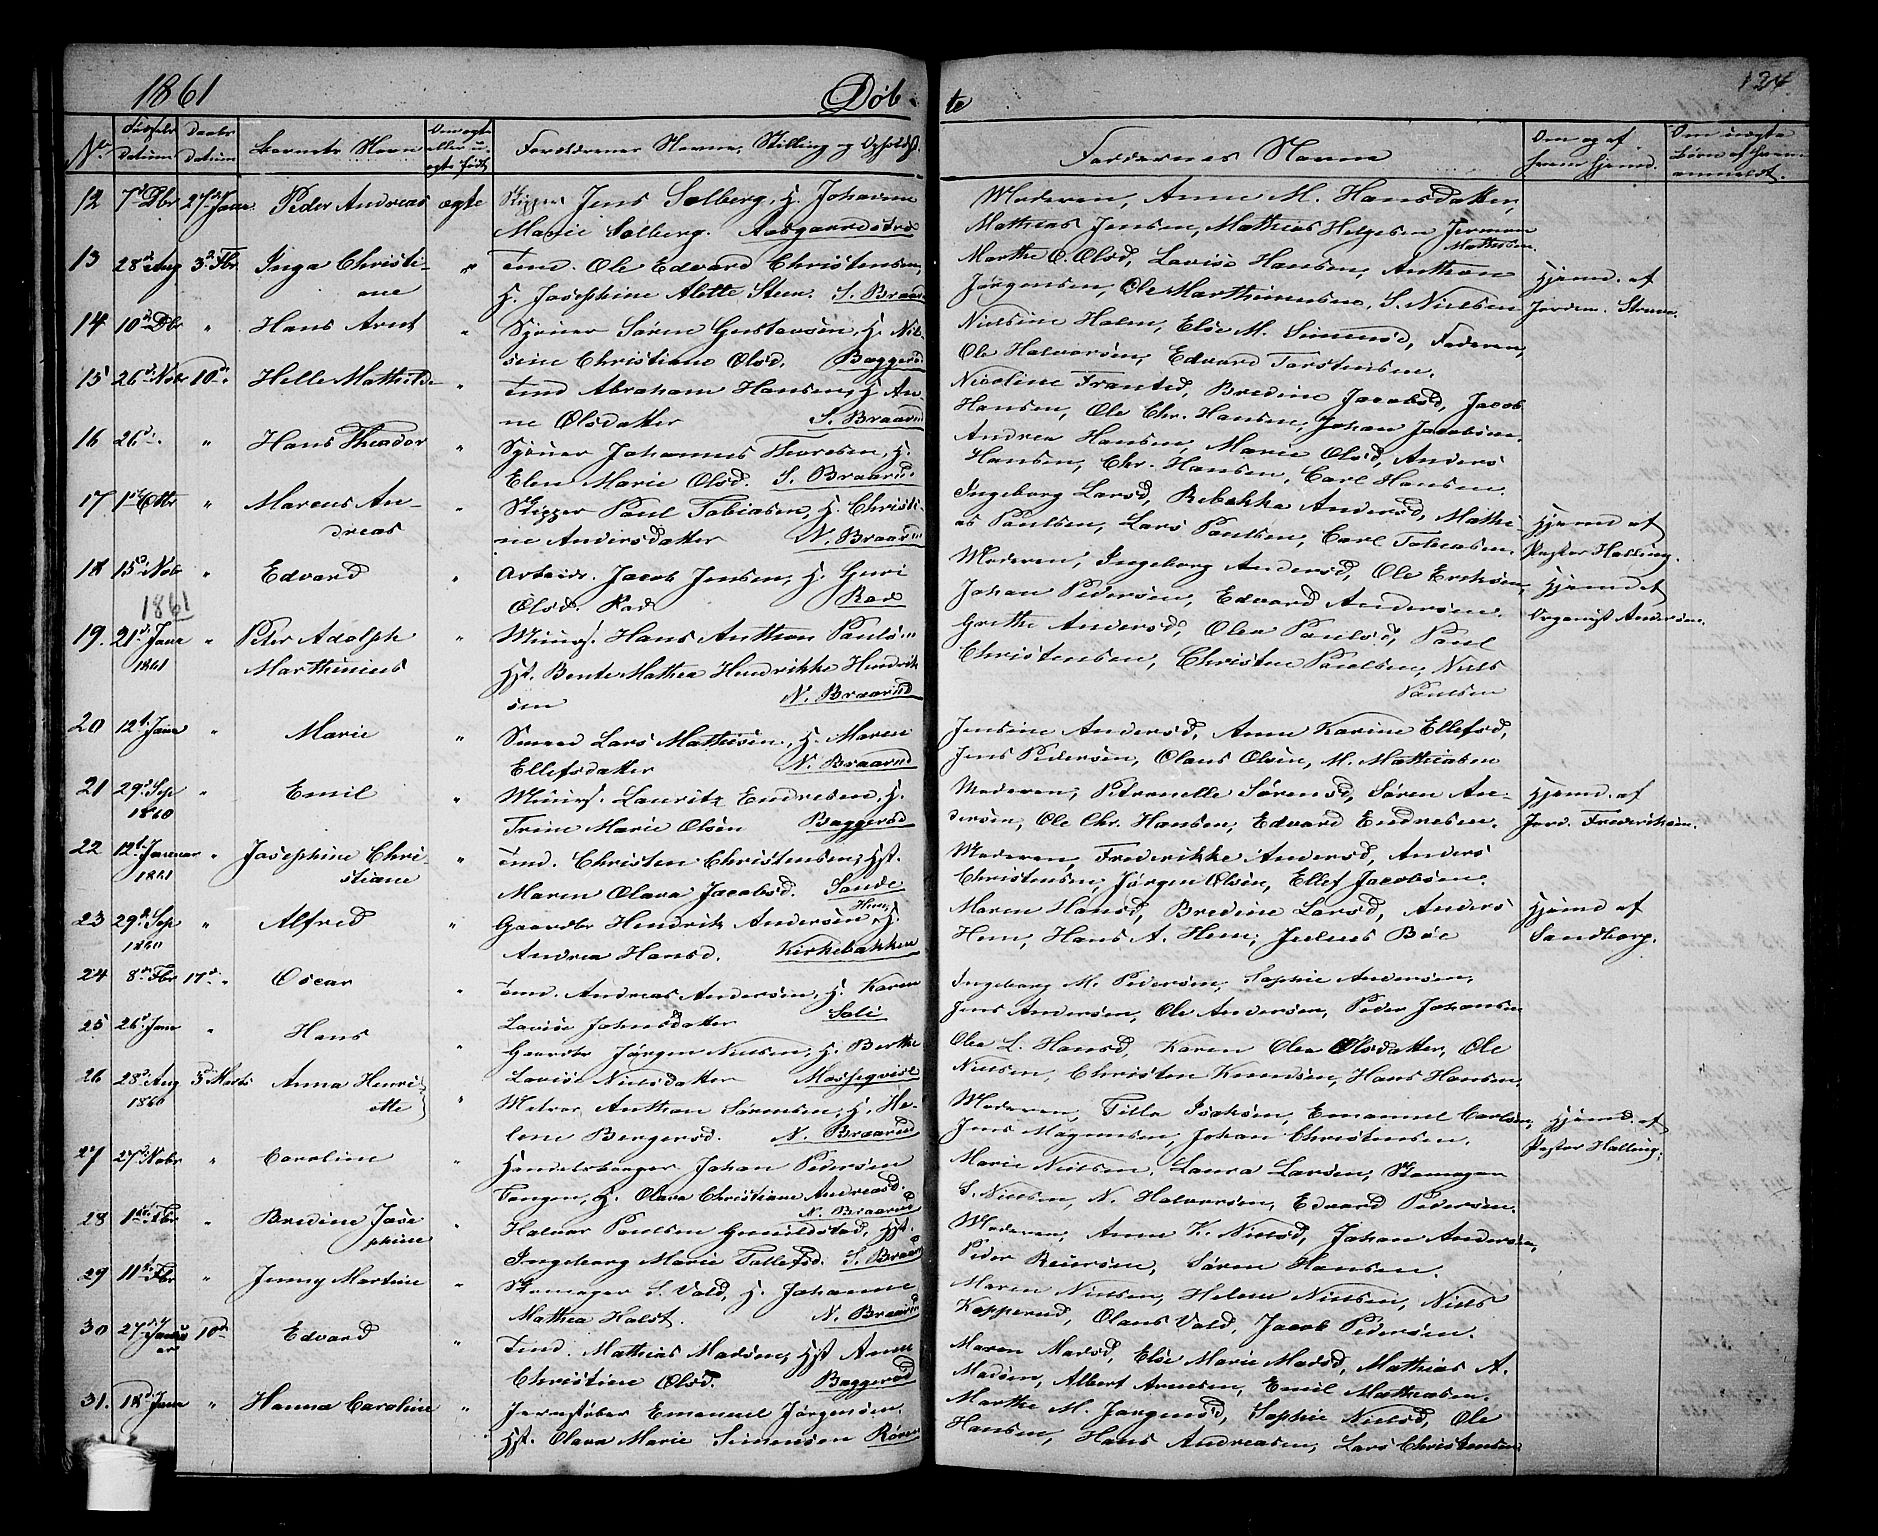 1861
Döb-
te
124.
No
Födsels Datum
Daabs Datum
Barnets Navn
Om ægte eller uægte født
Forældrenes Navne, Stilling og Opholdst.
Faddernes Navne
Om og af hvem hjemd.
Om uægte Børn af hvem anmeldt.
12 7d Dbr 27d Janr Peder Andreas ægte Skipper Jens Solberg, H. Johanne
Marie Solberg. Aasgaardstrd
Moderen, Anne M. Hansdatter,
Mathias Jensen, Mathias Helgesen
Mathisen.
13 28d Aug 3d Fbr Inga Christi-
ane
" Tmd. Ole Edvard Christensen,
H. Josephine Alette Steen. S. Braarud
Marthe O. Olsd, Lovise Hansen, Anthon
Jörgensen, Ole Marthinusen, S. Nielsen
Hjemd. af
Jordm. Strøm.
14 10d Dbr " Hans Arnt " Sjömer Sören Gustavsön, H. Nil-
sine Christiane Olsd. Baggerød
Nielsine Holm, Else M. Simensd, Faderen,
Ole Halvorsön, Edvard Torstensen.
15 26d Nobr 10d. Helle Mathilde " Tmd Abraham Hansen, H. An-
ne Olsdatter S. Braarud
Nicoline Frantsd, Bredine Jacobsd, Jacob
Hansen, Ole Chr. Hansen, Johan Jacobsen.
16 26d. " Hans Theodor " Sjömer Johannes Thoresen, H.
Elen Marie Olsd. S. Braarud
Andrea Hansen, Marie Olsd, Anders
Hansen, Chr. Hansen, Carl Hansen.
17 1ste Octbr " Marcus An-
dreas
" Skipper Paul Tobiasen, H. Christi-
ne Andersdatter N. Braarud
Ingeborg Larsd, Rebekka Andersd, Mathi-
as Paulsen, Lars Paulsen, Carl Tobiasen.
Hjemd af
Pastor Halling.
18 15d Nobr " Edvard " Arbeidr. Jacob Jensen, H. Guri
Olsd. Rød Rød
Moderen, Ingeborg Andersd, Ole Erichsen,
Johan Pedersön, Edvard Andersön.
Hjemd af
Organist Andersön.
1861
19. 21d. Janr
1861
" Peter Adolph
Marthinius
" Muurs. Hans Anthon Paulsen
Hst. Bente Mathea Hendrikke Hendrik-
sen N. Braarud
Grethe Andersd, Olea Paulsd, Paul
Christensen, Christen Paulsen, Niels
Paulsen
20 12t. Janr " Marie " Smed Lars Mathisen, H. Maren
Ellefsdatter N. Braarud
Jensine Andersd, Anne Karine Ellefsd,
Jens Pedersön, Olaus Olsön, M. Mathiasen
21 29d. Sep
1860
" Emil " Muurs. Lauritz Endresen, H.
Trine Marie Olsön Baggerød
Moderen, Petronelle Sörensd, Sören An-
dersön, Ole Chr. Hansen, Edvard Endresen.
Hjemd. af
Jord. Frederiksen.
22 12t. Januar
1861
" Josephine Chri-
stiane
" Tmd. Christen Christensen, Hst.
Maren Olava Jacobsd. Sande
Moderen, Frederikke Andersd, Anders
Christensön, Jörgen Olsön, Ellef Jacobsön.
23 29d Sep
1860
" Alfred " Gaardbr Hendrik Andersön Hem, H.
Andrea Hansd. Kirkebakken
Maren Hansd, Bredine Larsd, Anders
Hem, Hans A. Hem, Julius Böe
Hjemd af
Sandborg.
24 8d Fbr 17d. Oscar " Tmd. Andreas Andersön, H. Karen
Lovise Johnsdatter Soli
Ingeborg M. Pedersön, Sophie Andersön,
Jens Andersön, Ole Andersön, Peder Johansen
25 26d Jan " Hans " Gaardbr Jörgen Nielsen, H. Berthe
Lovise Nielsdatter Masseqvist
Olea L. Hansd, Karen Olea Olsdatter, Ole
Nielsen, Christen Knudsön, Hans Hansen.
26 28d. Aug
1860
3d Marts Anna Henri-
ette
" Matros Anthon Sörensen, H. He-
lene Bergersd. N. Braarud
Moderen, Tilla Isaksön, Emanuel Carlsön,
Jens Magnusen, Johan Christensen.
Hjemd. af
Pastor Halling.
27 27d Nobr " Caroline " Handelsborger Johan Pedersön
Tangen, H. Olava Christiane Andreasd.
N. Braarud
Marie Nielsen, Laura Larsön, Skomager
S. Nielsen, N. Halvorsön, Edvard Pedersen.
28 1ste Fbr " Bredine Jose
phine
" Halvor Paulsen Gunildstad, Hst.
Ingeborg Marie Tollefsd. S. Braarud
Moderen, Anne K. Nielsd, Johan Andersön,
Peder Reiersön, Sören Hansen.
29 11te Fbr " Jenny Martine " Skomager S. Vold, H. Johanne
Mathea Holst. N. Braarud
Maren Nielsen, Helene Nielsen, Niels
Kopperud, Olaus Vold, Jacob Pedersön.
30 27d Janu
ar
10d. Edvard " Tmd. Mathias Madsön, Hst Anne
Christine Olsd. Baggerød
Maren Madsd, Else Marie Madsd, Mathias A.
Madsön, Albert Arnesen, Emil Mathiasen.
31. 18d Janr " Hanna Caroline " Jernstöber Emanuel Jörgensen,
Hst. Olava Marie Simensen Røren
Marthe M. Jörgensd, Sophie Nielsd, Ole
Hansen, Hans Andreasen, Lars Christensen